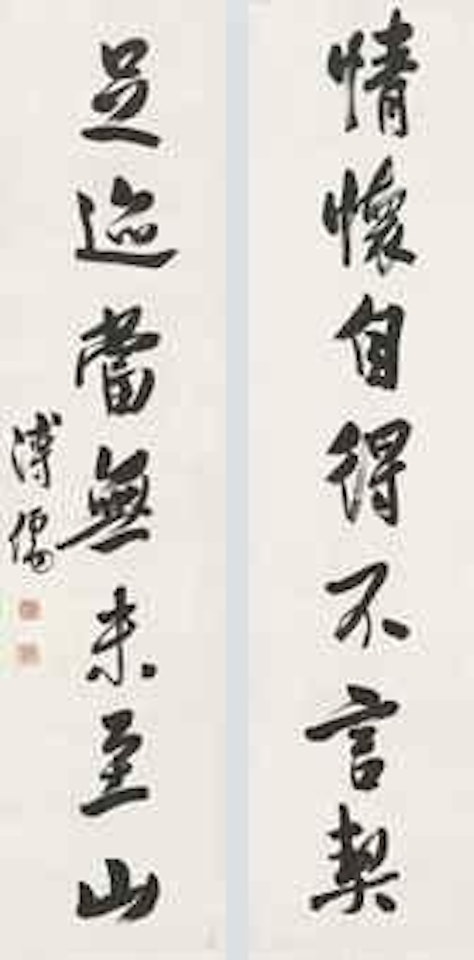 情懷自得不言契
足迹當無未至山
溥儒